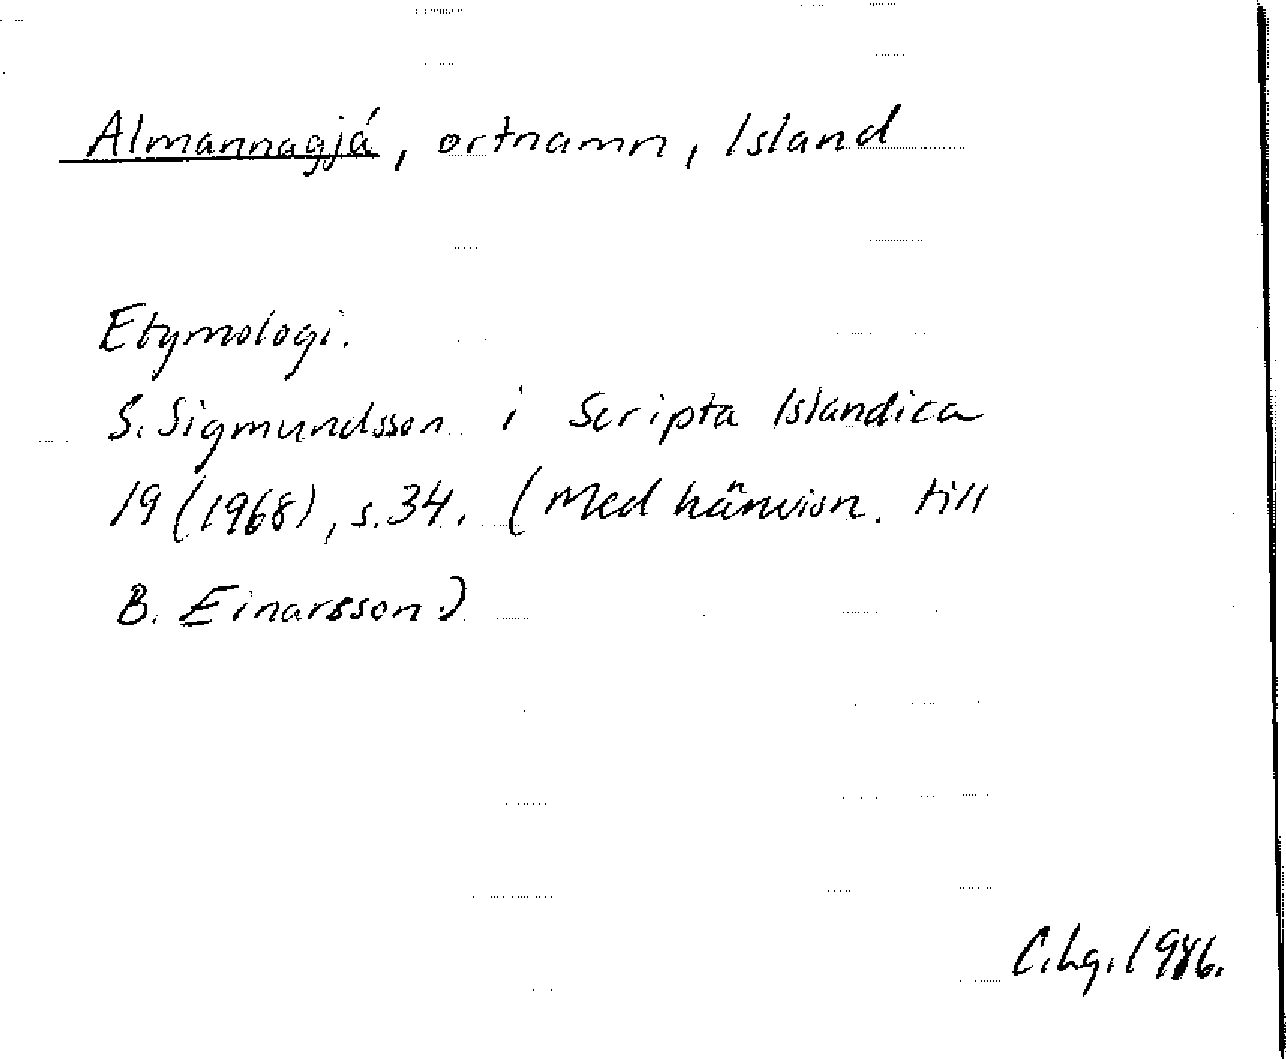 Almannagjá, ortnamn, Island
Etymologi.
S. Sigmundsson i Scripta Islandica
19 (1968), s. 34. (Med hänvisn. till
B. Einarsson.)
C. Lg. 1986.